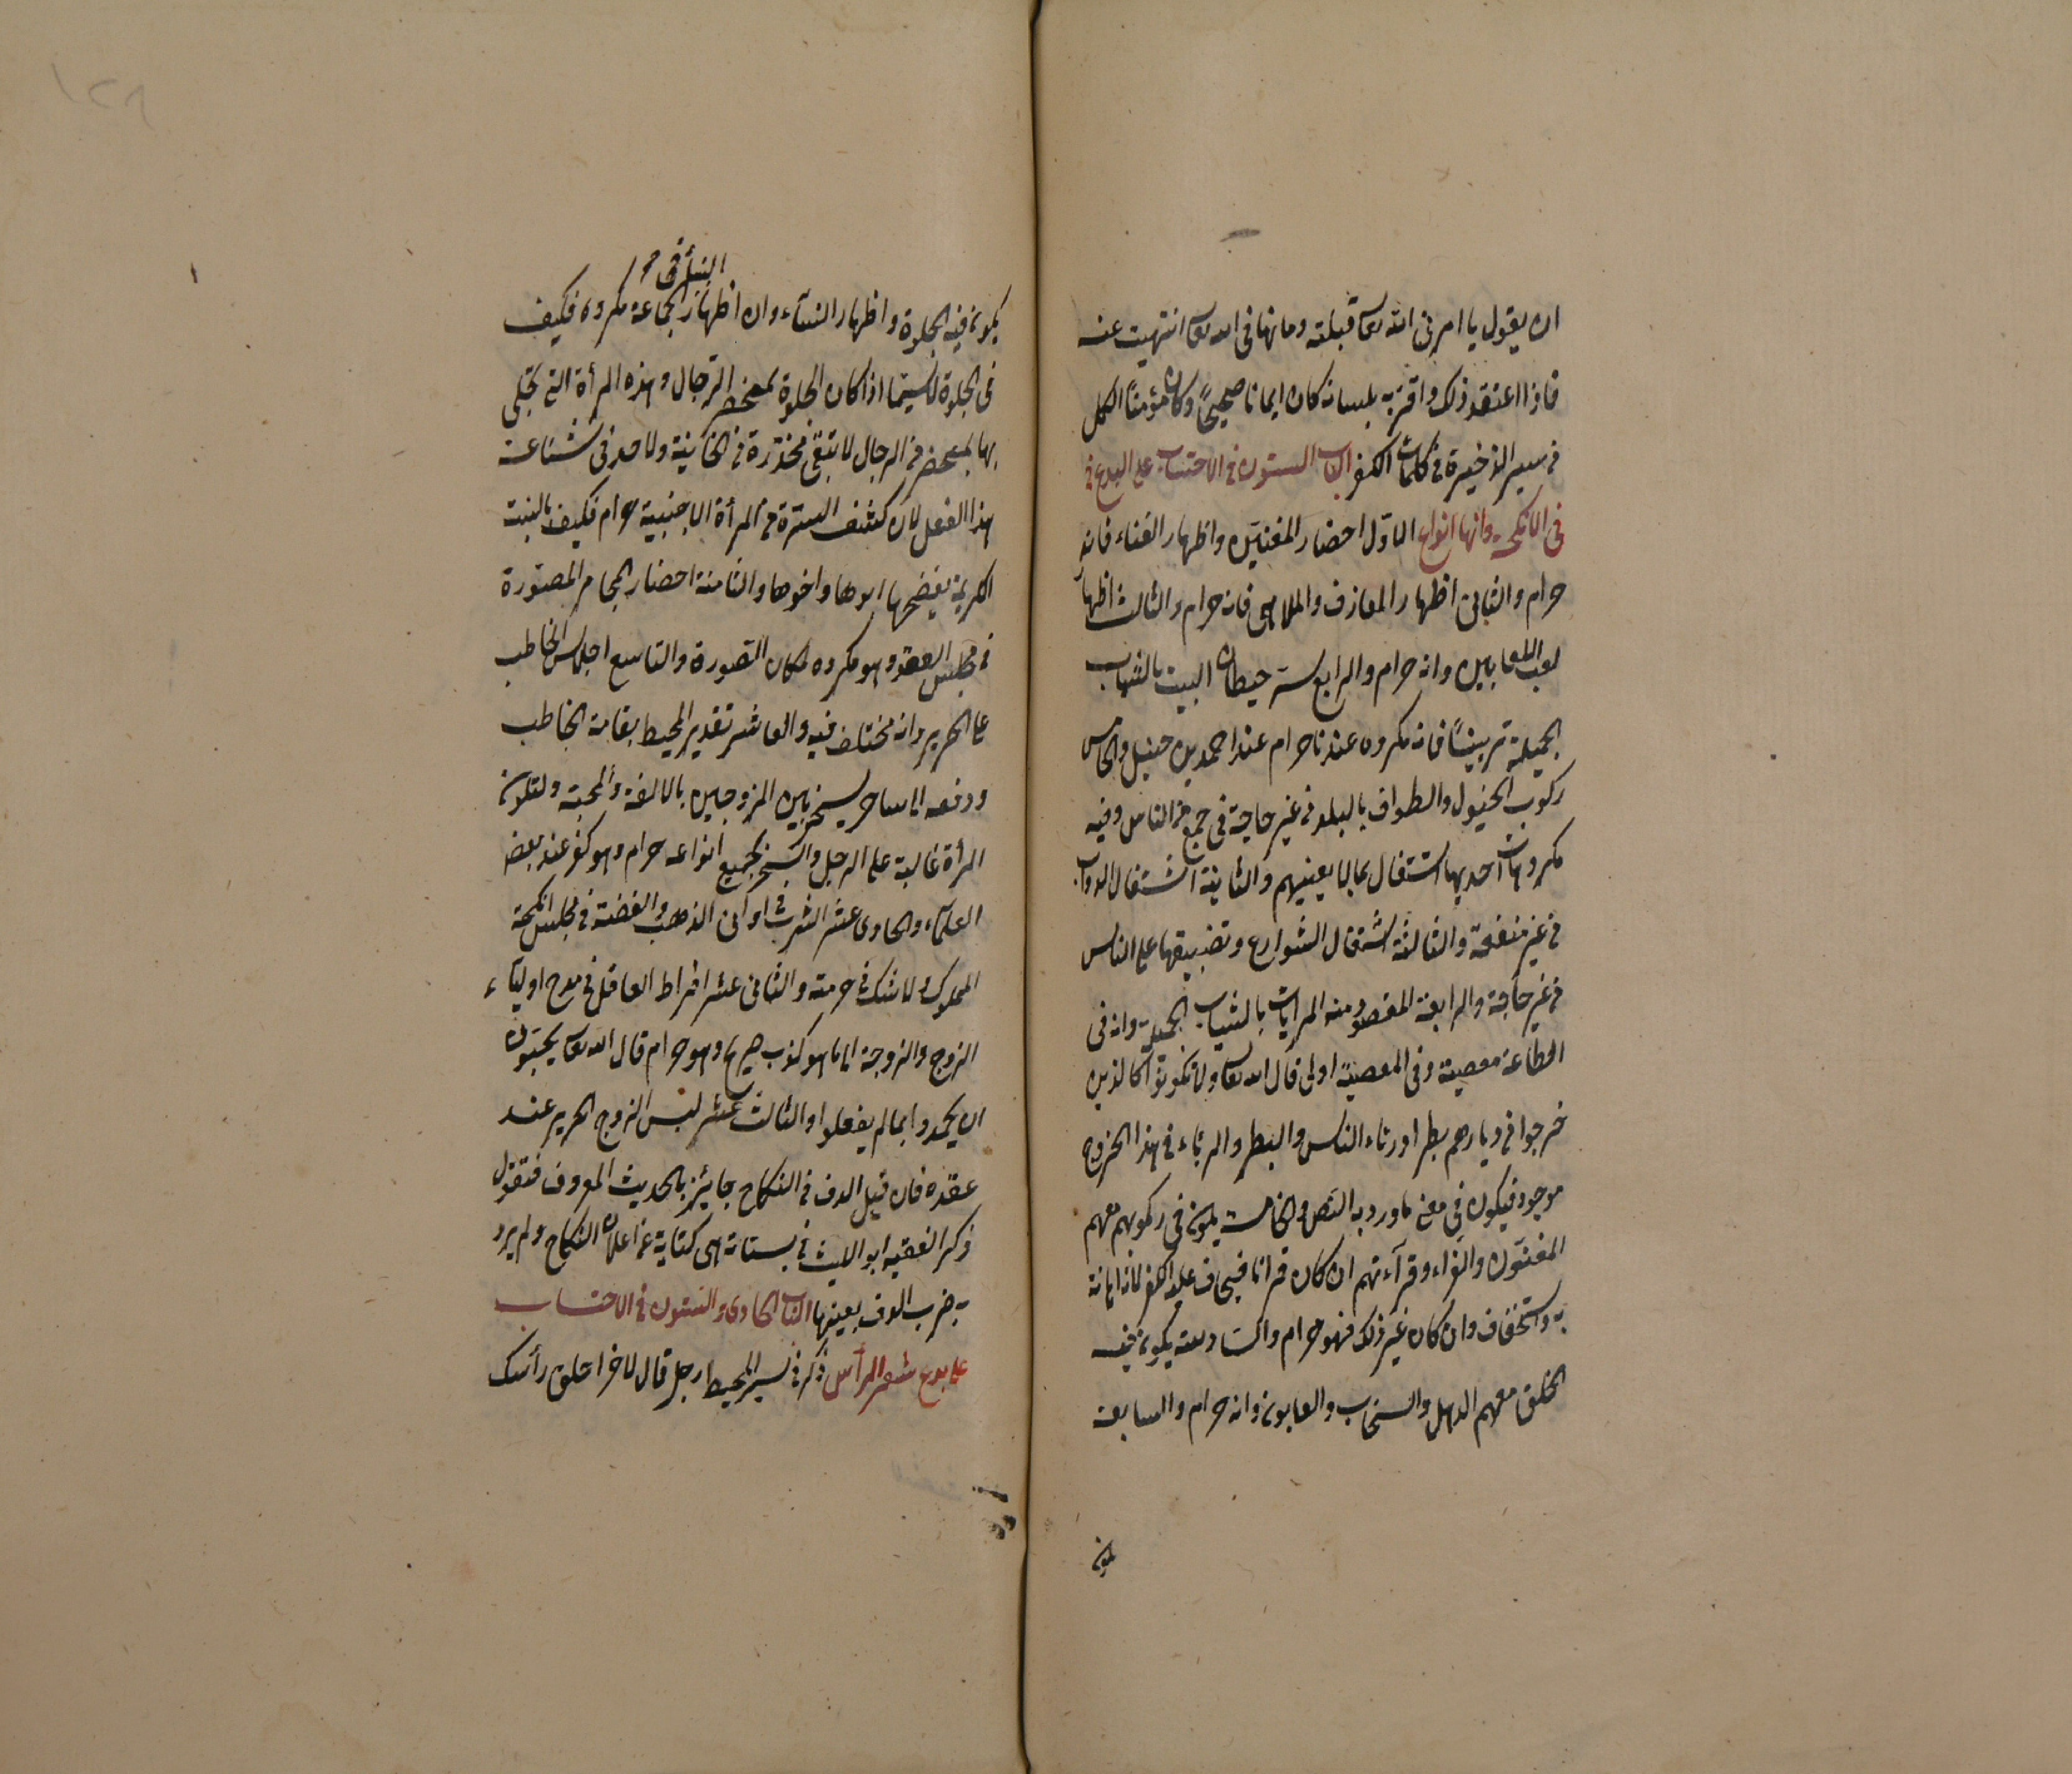 ان يقول يا امرنى الله تعا قبلته وما نهانى الله تعا انتهيت عنه
فاذا اعتقد ذلك واقر به بلسانه كان ايمانا صحيحًا وكان مؤمنًا الكل
فى سير الذخيرة فى كلمات الكفر الباب الستون فى الاحتساب على البدع فى
فى الانكحة وانها انواع الاوّل احضار المغنيّن واظهار الغناء فانه
حرام والثانى اظهار المعازف والملاهى فانه حرام والثالث اظهار
لعب اللعابين وانه حرام والرابع ستر حيطان البيت بالثياب
الجميلة تزيينًا فانه مكروه عندنا حرام عند احمد بن حنبل والخامس
ركوب الخيول والطواف بالبلد فى غير حاجة فى جمع من الناس وفيه
مكروهات احديها اشتغال بما لا يعنيهم والثانية اشتغال الدواب
فى غير منفعة والثالثة اشتغال الشوارع وتضييقها على الناس
فى غير حاجة والرابعة المقصود منه المرايات بالثياب الجميلة وانه فى
الطاعة معصية وفى المعصية اولى قال الله تعا ولا تكونوا كالذين
خرجوا فى ديارهم بطرا ورئاء الناس والبطر والرئاء فى هذا الخروج
موجود فيكون فى معنى ما ورد به النص والخامسة يكون فى ركوبهم معهم
المغنون والقراء وقرآءتهم ان كان قرانا فيخاف عليه الكفر لانه اهانة
به واستخفاف وان كان غير ذلك فهو حرام والسادسة يكون فيه
الخلق معهم الدهل والسنحاب والعابون وانه حرام والسابعة
يكون
١٢٨
النبأ فى
يكون فيه الجلوة واظهار النسآء وان اظهار الجماعة مكروه فكيف
فى الجلوة لاسيّما اذا كان الجلوة بمحضر الرجال وهذه المرأة التى تجلى
بها بمحضر من الرجال لا تبقى مخدّرة فى الخآينة ولا مد فى شناعة
هذا الفعل لان كشف السترة من المرأة الاجنبية حرام فكيف بالبنت
الكريمة يفضحها ابوها واخوها والثامنة احضار الجام المصتورة
فى مجلس العقد وهو مكروه لمكان التصورة والتاسع اجلاس الخاطب
على الحرير وانه مختلف فيه والعاشر تقدير المحيط بقامة الخاطب
ودفعه الى ساحر يسخر بين الزوجين بالالفة والمحبة ولتكون
المرأة غالبة على الرجل والسخر بجميع انواعه حرام وهو كفر عند بعض
العلمآء والحادى عشر الشرب فى اوانى الذهب والفضة فى مجلس انكحة
الملوك ولا شك فى حرمته والثانى عشر افراط العاقل فى مدح اوليآء
الزوج والزوجة الى ما هو كذب صريح وهو حرام قال الله تعا يحبّون
ان يحمدوا بما لم يفعلوا والثالث عشر لبس الزوج الحرير عند
عقده فان قيل الدف فى النكاح جائز بالحديث المعروف فنقول
ذكر الفقيه ابو الليث فى بستانه هى كناية عن اعلان النكاح ولم يرد
به ضرب الدف بعينها الباب الحادى والستون فى الاحتساب
على بدع شعر الرأس ذكر فى سير المحيط رجل قال لاخر احلق رأسك